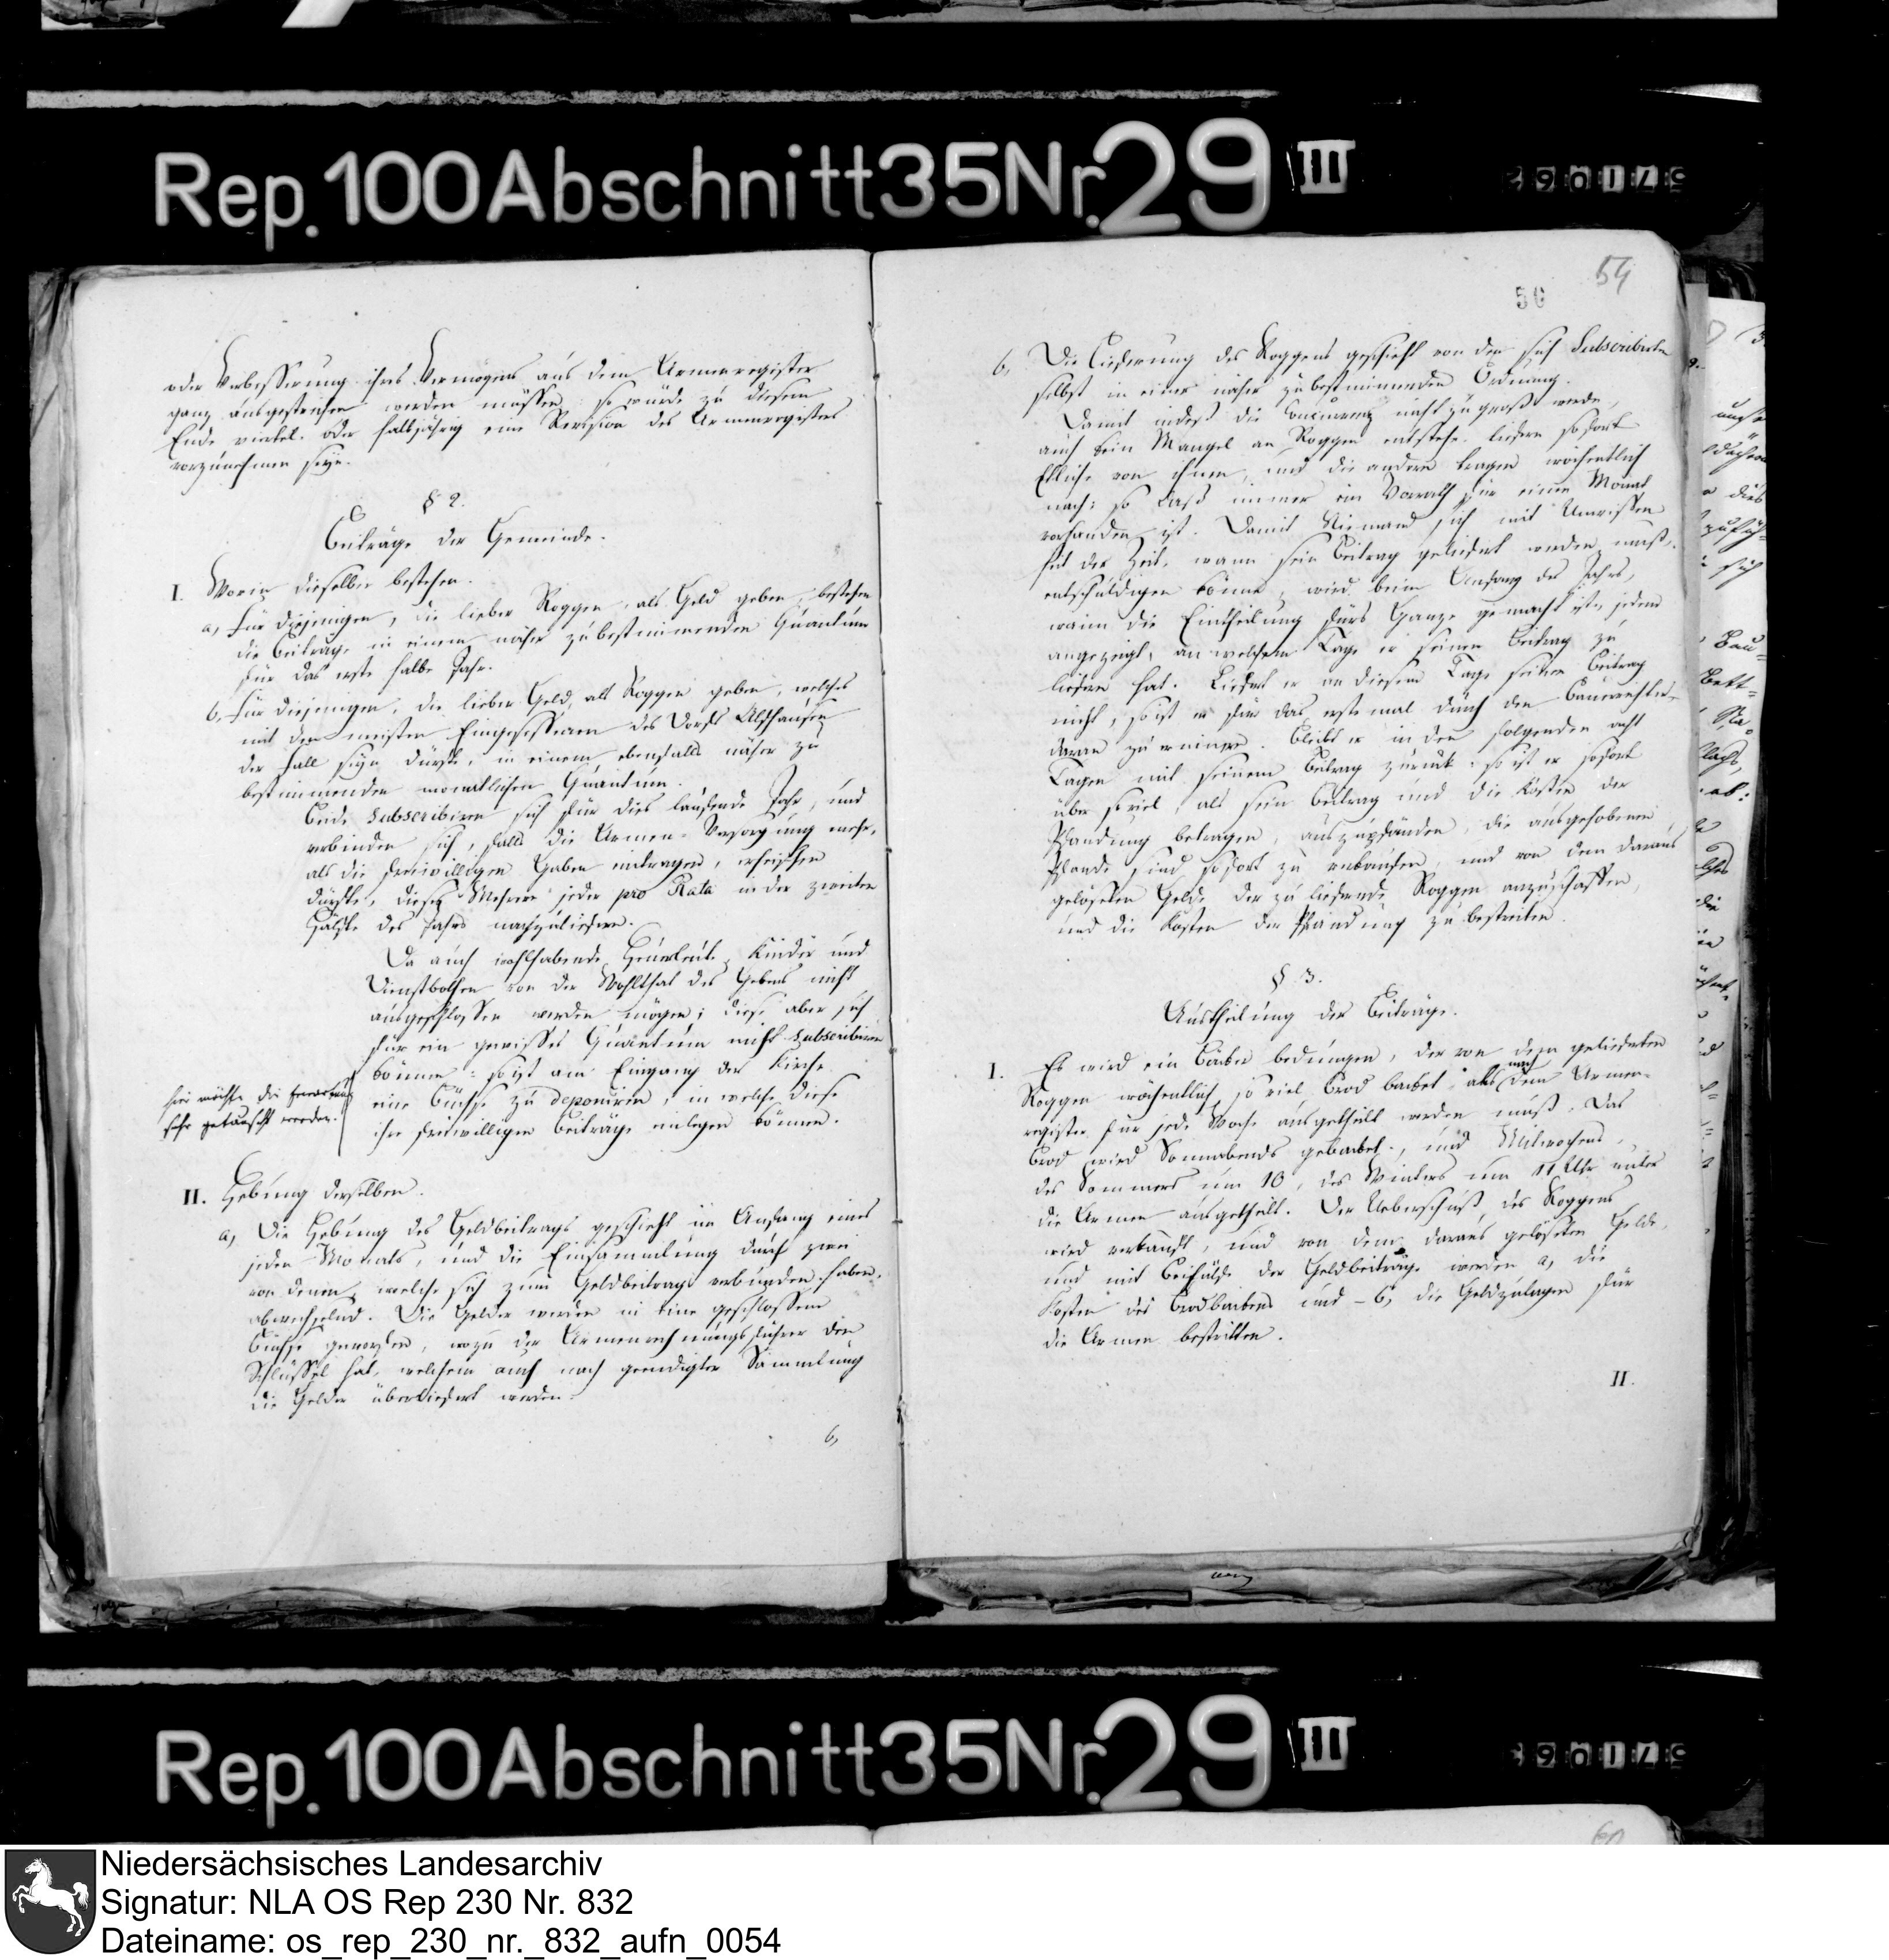 Rep. 100 Abschnitt 35 Nr. 29 III
oder Verbesserung ihres Vermögens aus dem Armenregister
ganz ausgestrichen werden müssen: so würde zu diesem
Ende viertel- oder halbjährig eine Revision des Armenregisters
vorzunehmen seyn.
§ 2.
Beiträge der Gemeinde.
I. Worin dieselben bestehen.
a, Für diejenigen, die lieber Roggen, als Geld geben, bestehen
die Beiträge in einem näher zu bestimmenden Quantum
für das erste halbe Jahr.
b, Für diejenigen, die lieber Geld, als Roggen geben, welches
mit den meisten Eingesessenen des Dorfs
der Fall seyn dürfte, in einem, ebenfalls näher zu
bestimmenden monatlichen Quantum.
Beide subscribiren sich für dies laufende Jahr, und
verbinden sich, falls die Armen-Versorgung mehr,
als die freiwilligen Gaben eintragen, erheischen
dürfte, dieses Mehrere jeder pro Rata in der zweiten
Hälfte des Jahrs nachzuliefern.
Da auch wohlhabende Heuerleute, Kinder und
Dienstbothen von der Wohlthat des Gebens nicht
ausgeschlossen werden mögen; diese aber sich
für ein gewisses Quantum nicht subscribiren
können: so ist am Eingang der Kirche
eine Büchse zu deponiren, in welche diese
ihre freiwilligen Beiträge einlegen können.
hier möchte die Erwartung
sehr getäuscht werden.
II. Hebung derselben.
a, Die Hebung des Geldbeitrags geschieht im Anfang eines
jeden Monats, und die Einsammlung durch zwei
von denen, welche sich zum Geldbeitrage verbunden haben,
abwechselnd. Die Gelder werden in eine geschlossene
Büchse geworfen, wozu der Armenrechnungsführer den
Schlüssel hat, welchem auch nach geendigter Sammlung
die Gelder überliefert werden.
b,
54
50
b, Die Lieferung des Roggens geschieht von den sich Subscribirten
selbst in einer näher zu bestimmenden Ordnung.
Damit indeß die Concurrenz nicht zu groß werde,
auch kein Mangel an Roggen entstehe: liefern sofort
Etliche von ihnen, und die andern tragen wöchentlich
nach: so daß immer ein Vorrath für einen Monat
vorhanden ist. Damit Niemand sich mit Unwissen
heit der Zeit, wann sein Beitrag geliefert werden muß,
entschuldigen könne, wird beim Anfang des Jahrs,
wann die Eintheilung fürs Ganze gemacht ist, jedem
angezeigt, an welchem Tage er seinen Beitrag zu
liefern hat. Liefert er an diesem Tage seinen Beitrag
nicht, so ist er für das erste mal durch den
daran zu erinnern. Bleibt er in den folgenden acht
Tagen mit seinem Beitrag zurück: so ist er sofort
über so viel, als sein Beitrag und die Kosten der
Pfandung betragen, auszupfänden, die ausgehobenen
Pfande sind sofort zu verkaufen, und von dem daraus
gelöseten Gelde der zu liefernde Roggen anzuschaffen,
und die Kosten der Pfandung zu bestreiten.
§ 3.
Austheilung der Beiträge.
I. Es wird ein Bäcker bedungen, der von dem gelieferten
Roggen wöchentlich so viel Brod backet, als nach dem Armen-
register für jede Woche ausgetheilt werden muß. Das
Brod wird Sonnabends gebacket, und Mitwochens,
des Sommers um 10, des Winters um 11 Uhr unter
die Armen ausgetheilt. Der Ueberschuß des Roggens
wird verkauft, und von dem daraus gelöseten Gelde,
und mit Beihülfe der Geldbeiträge werden a, die
Kosten des Brodbackens und - b, die Geldzulagen für
die Armen bestritten.
II.
Rep. 100 Abschnitt 35 Nr. 29 III
Niedersächsisches Landesarchiv
Signatur: NLA OS Rep 230 Nr. 832
Dateiname: os_rep_230_nr._832_aufn_0054